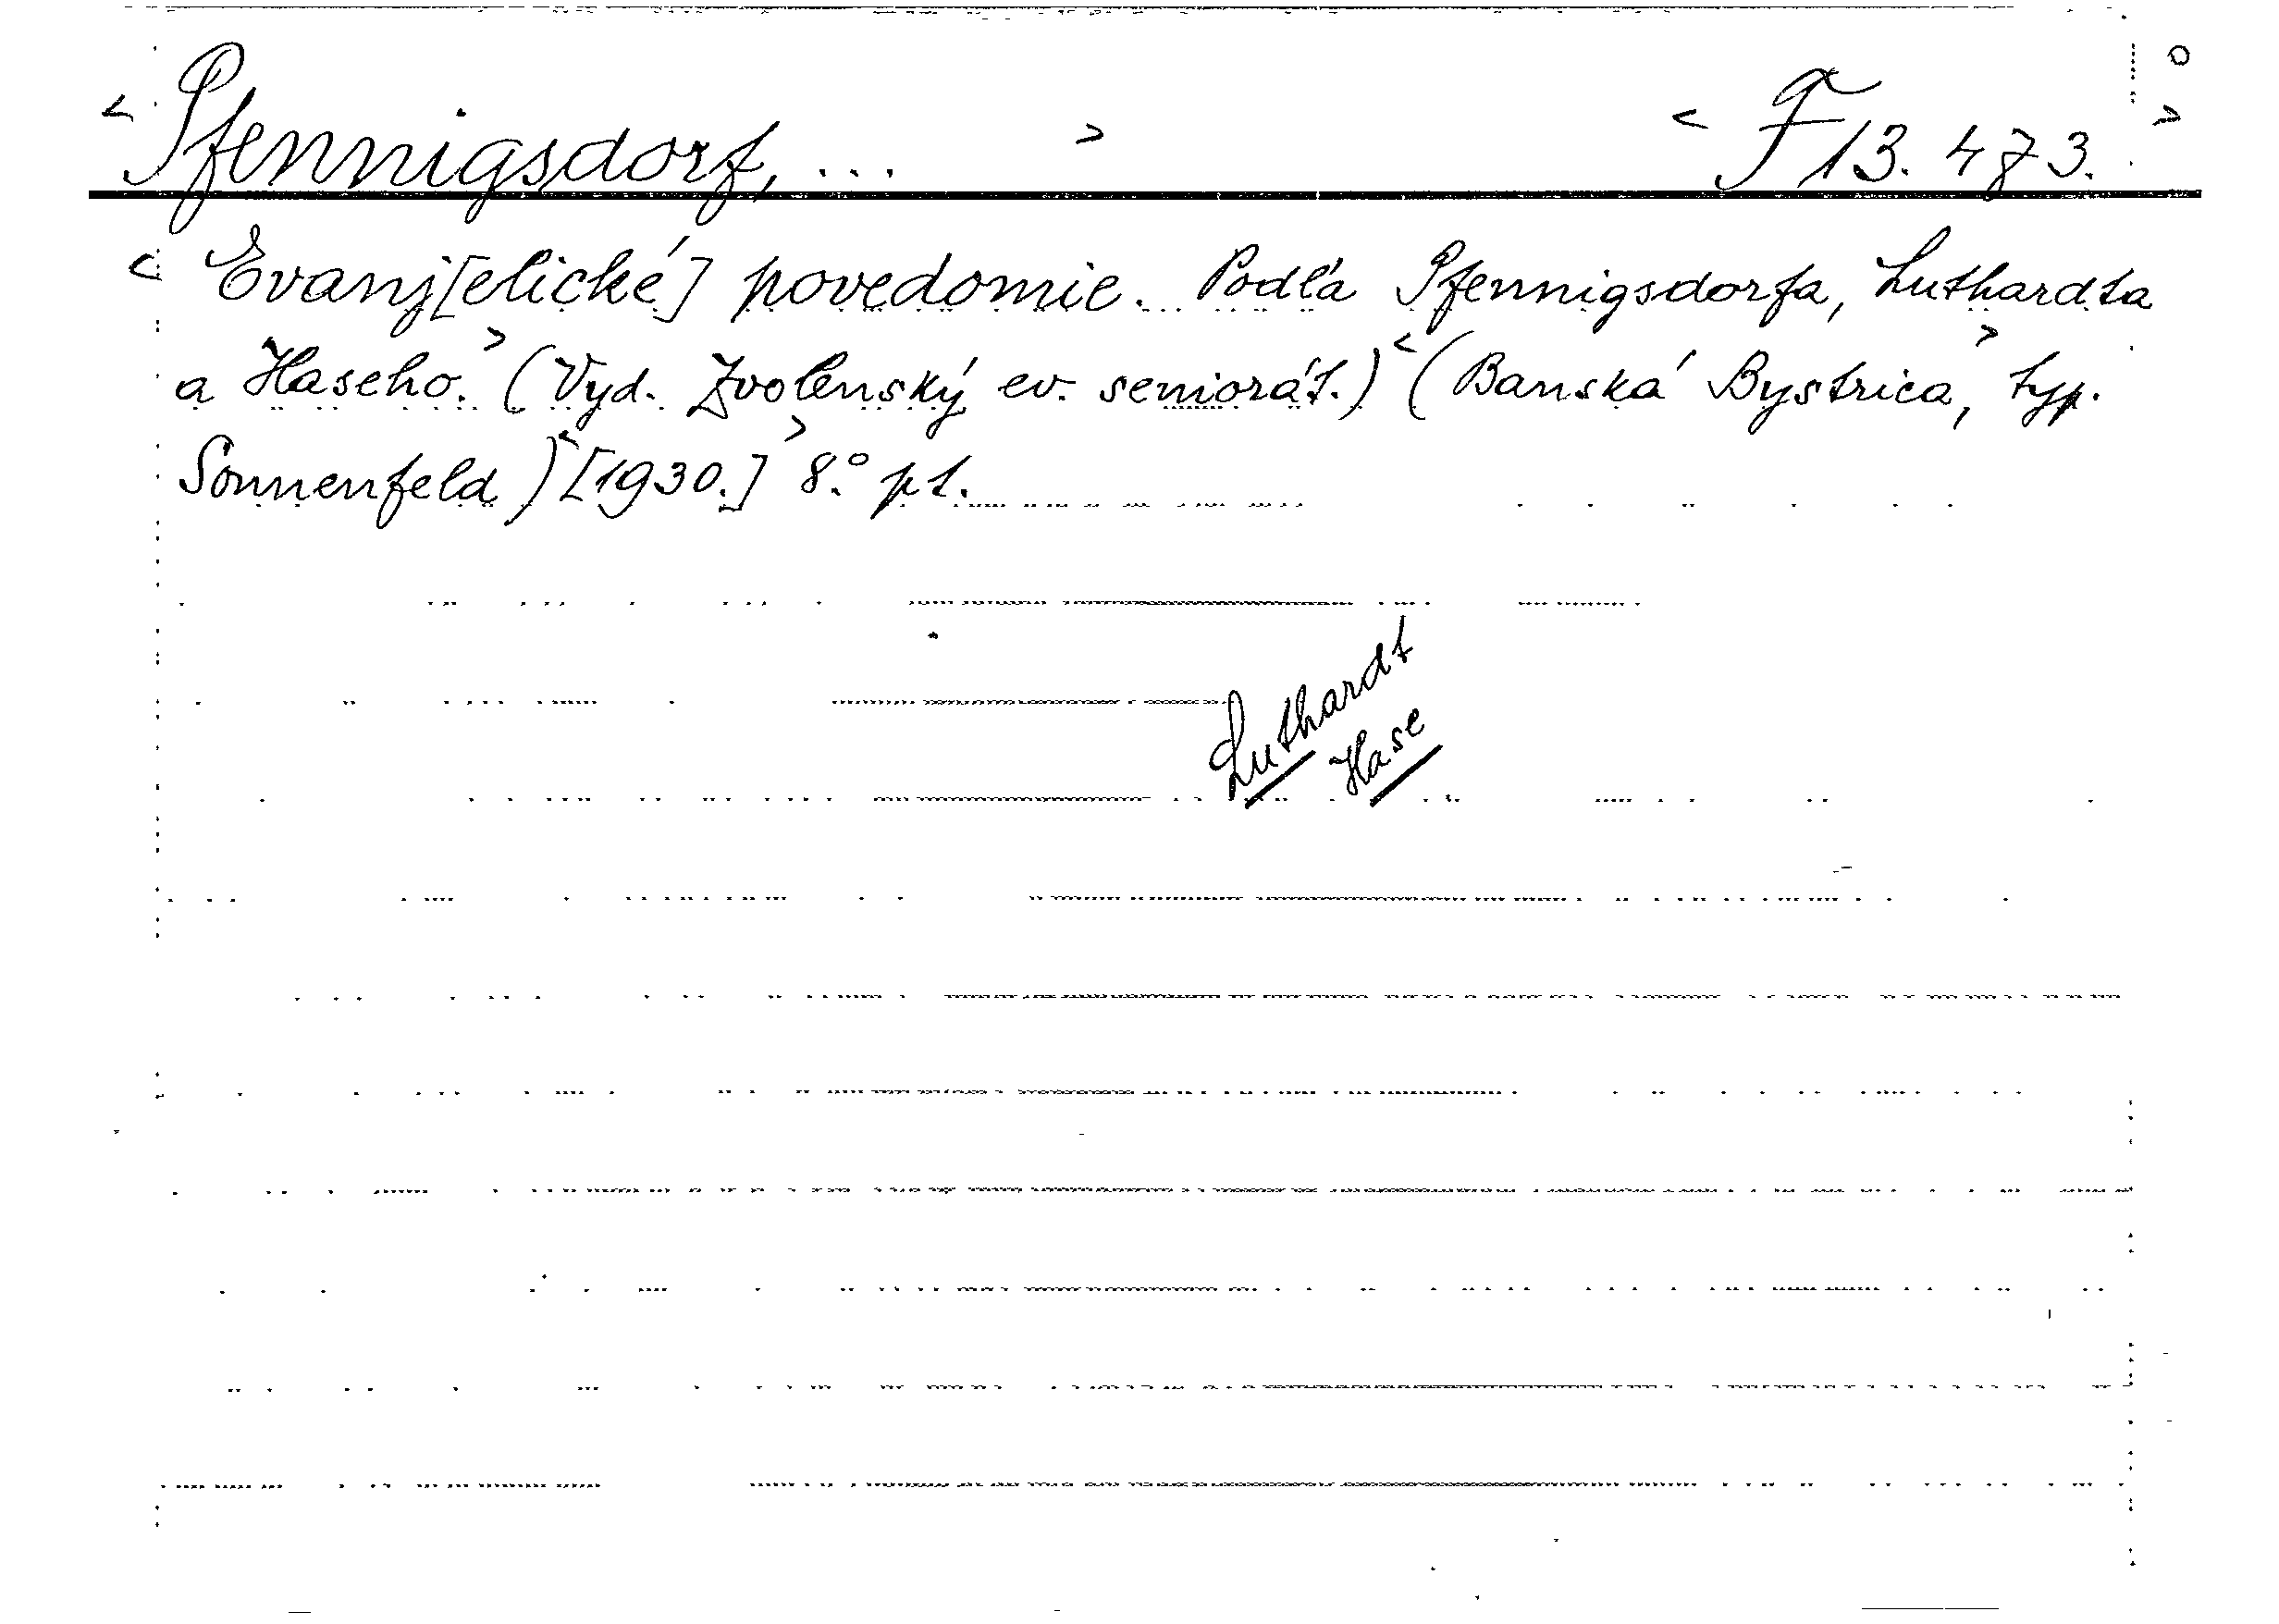 < Pfennigsdorf, ... > < F 13.473. >
< Evanj[elické] povedomie. Podľa Pfennigsdorfa, Luthardta
a Haseho.> (Vyd. Zvolenský ev. seniorát.) <(Banská Bystrica,> typ.
Sonnenfeld) <[1930.]> 8.° pt.
Luthardt
Hase